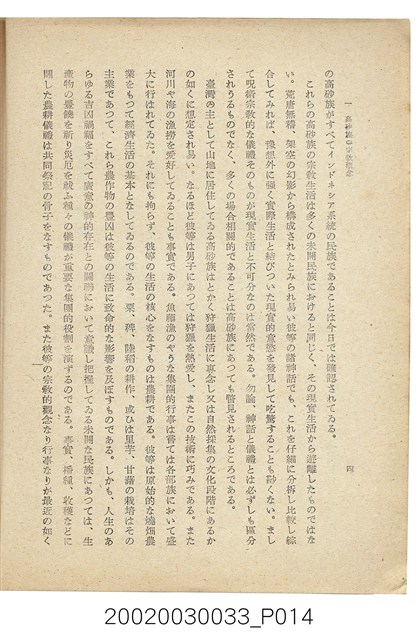 一 高砂族の宗教觀念
四
の高砂族がすべてインドネシア系統の民族であることは今日では確認されてゐる。
これらの高砂族の宗教生活は多くの未開民族におけると同じく、その現實生活から遊離したものではな
い。荒唐無稽、架空の幻影から構成されたとみられ易い彼等の諸神話でも、これを仔細に分析し比較し綜
合してみれば、豫想外に强く實際生活と結びついた現實的意慾を發見して吃驚することも尠くない。まし
て呪術宗教的な儀禮そのものが現實生活と不可分なのは當然である。勿論、神話と儀禮とは必ずしも區分
されうるものでなく、多くの場合相關的であることは高砂族にあつても瞥見されるところである。
臺灣の主として山地に居住してゐる高砂族はとかく狩獵生活に專念し又は自然採集の文化段階にあるか
の如くに想定され易い。なるほど彼等は男子にあつては狩獵を熱愛し、またこの技術に巧みである。また
河川や海の漁撈を愛好してゐることも事實である。魚藤漁のやうな集團的行事は嘗ては各部族において盛
大に行はれてゐた。それにも拘らず、彼等の生活の核心をなすものは農耕である。彼等は原始的な燒畑農
業をもつて經濟生活の基本となしてゐるのである。粟、稗、陸稻の耕作、或ひは里芋、甘藷の栽培はその
主業であつて、これら農作物の豐凶は彼等の生活に致命的な影響を及ぼすものである。しかも、人生のあ
らゆる吉凶禍福をすべて廣意の神的存在との關聯において意識し把握してゐる未開な民族にあつては、生
產物の豐饒を祈り災厄を祓ふ種々の儀禮が重要な集團的役割を演ずるのである。事實、播種、收穫などに
關した農耕儀禮は共同祭祀の骨子をなすものであつた。また彼等の宗教的觀念なり行事なりが最近の如く
20020030033_P014